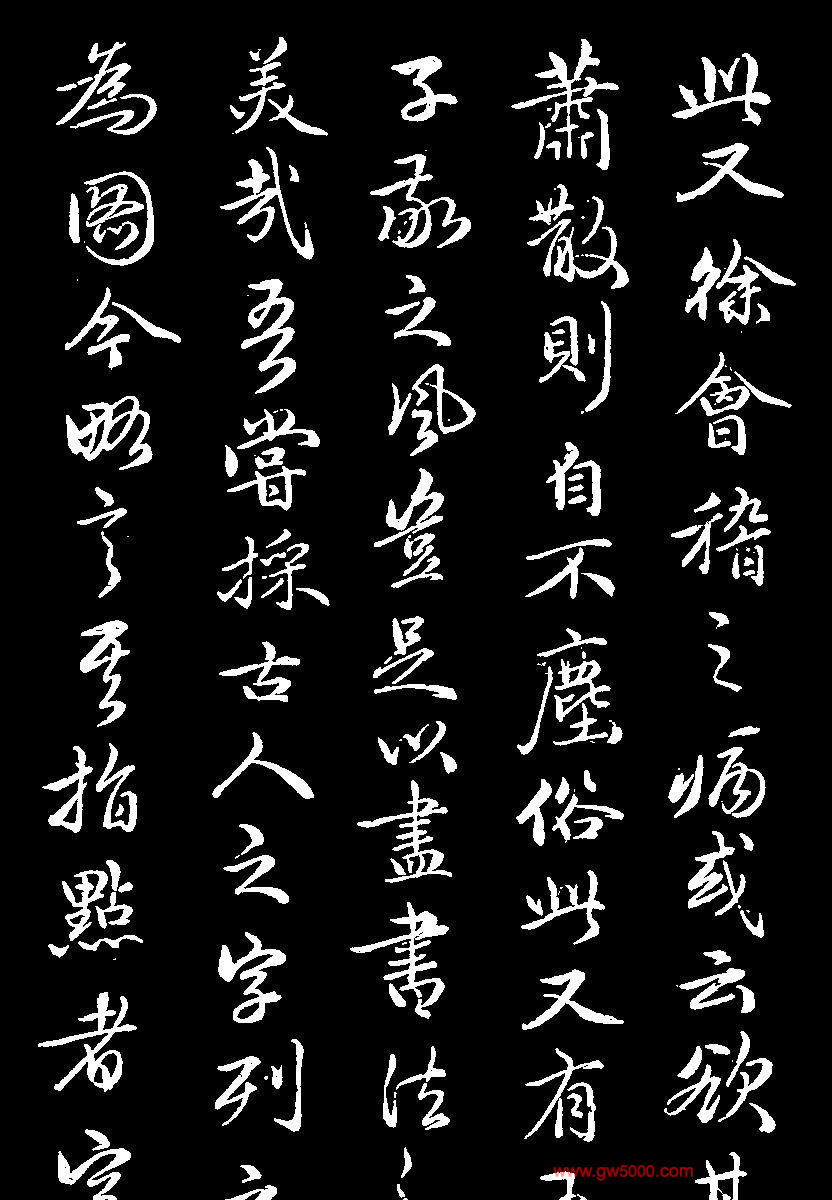 此又徐會稽之病或云欲其
蕭散則自不塵俗此又有王
子敬之風豈足以盡書法之
美哉吾嘗採古人之字列之
為圖今略言其指點者字
www.gw5000.com